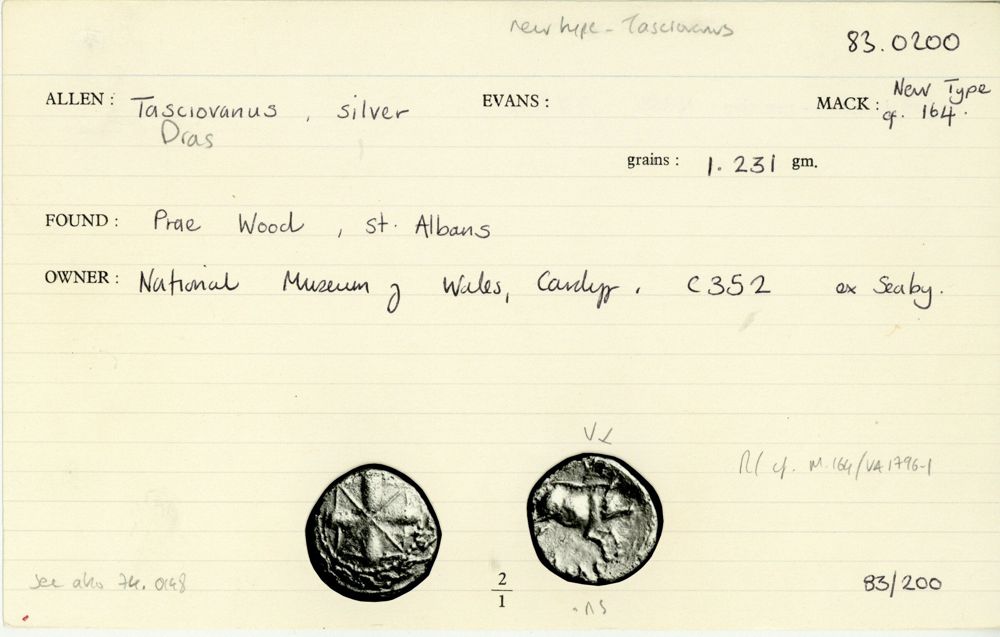 new type - Tasciovanus
83.0200
ALLEN : Tasciovanus , silver EVANS : MACK : New Type cf. 164.
Dras
grains : 1.231 gm.
FOUND : Prae Wood , St. Albans
OWNER : National Museum of Wales, Cardiff. C352 ex Seaby.
R/ cf. M.164/VA1796-1
see also 74.0148
2
1
83/200